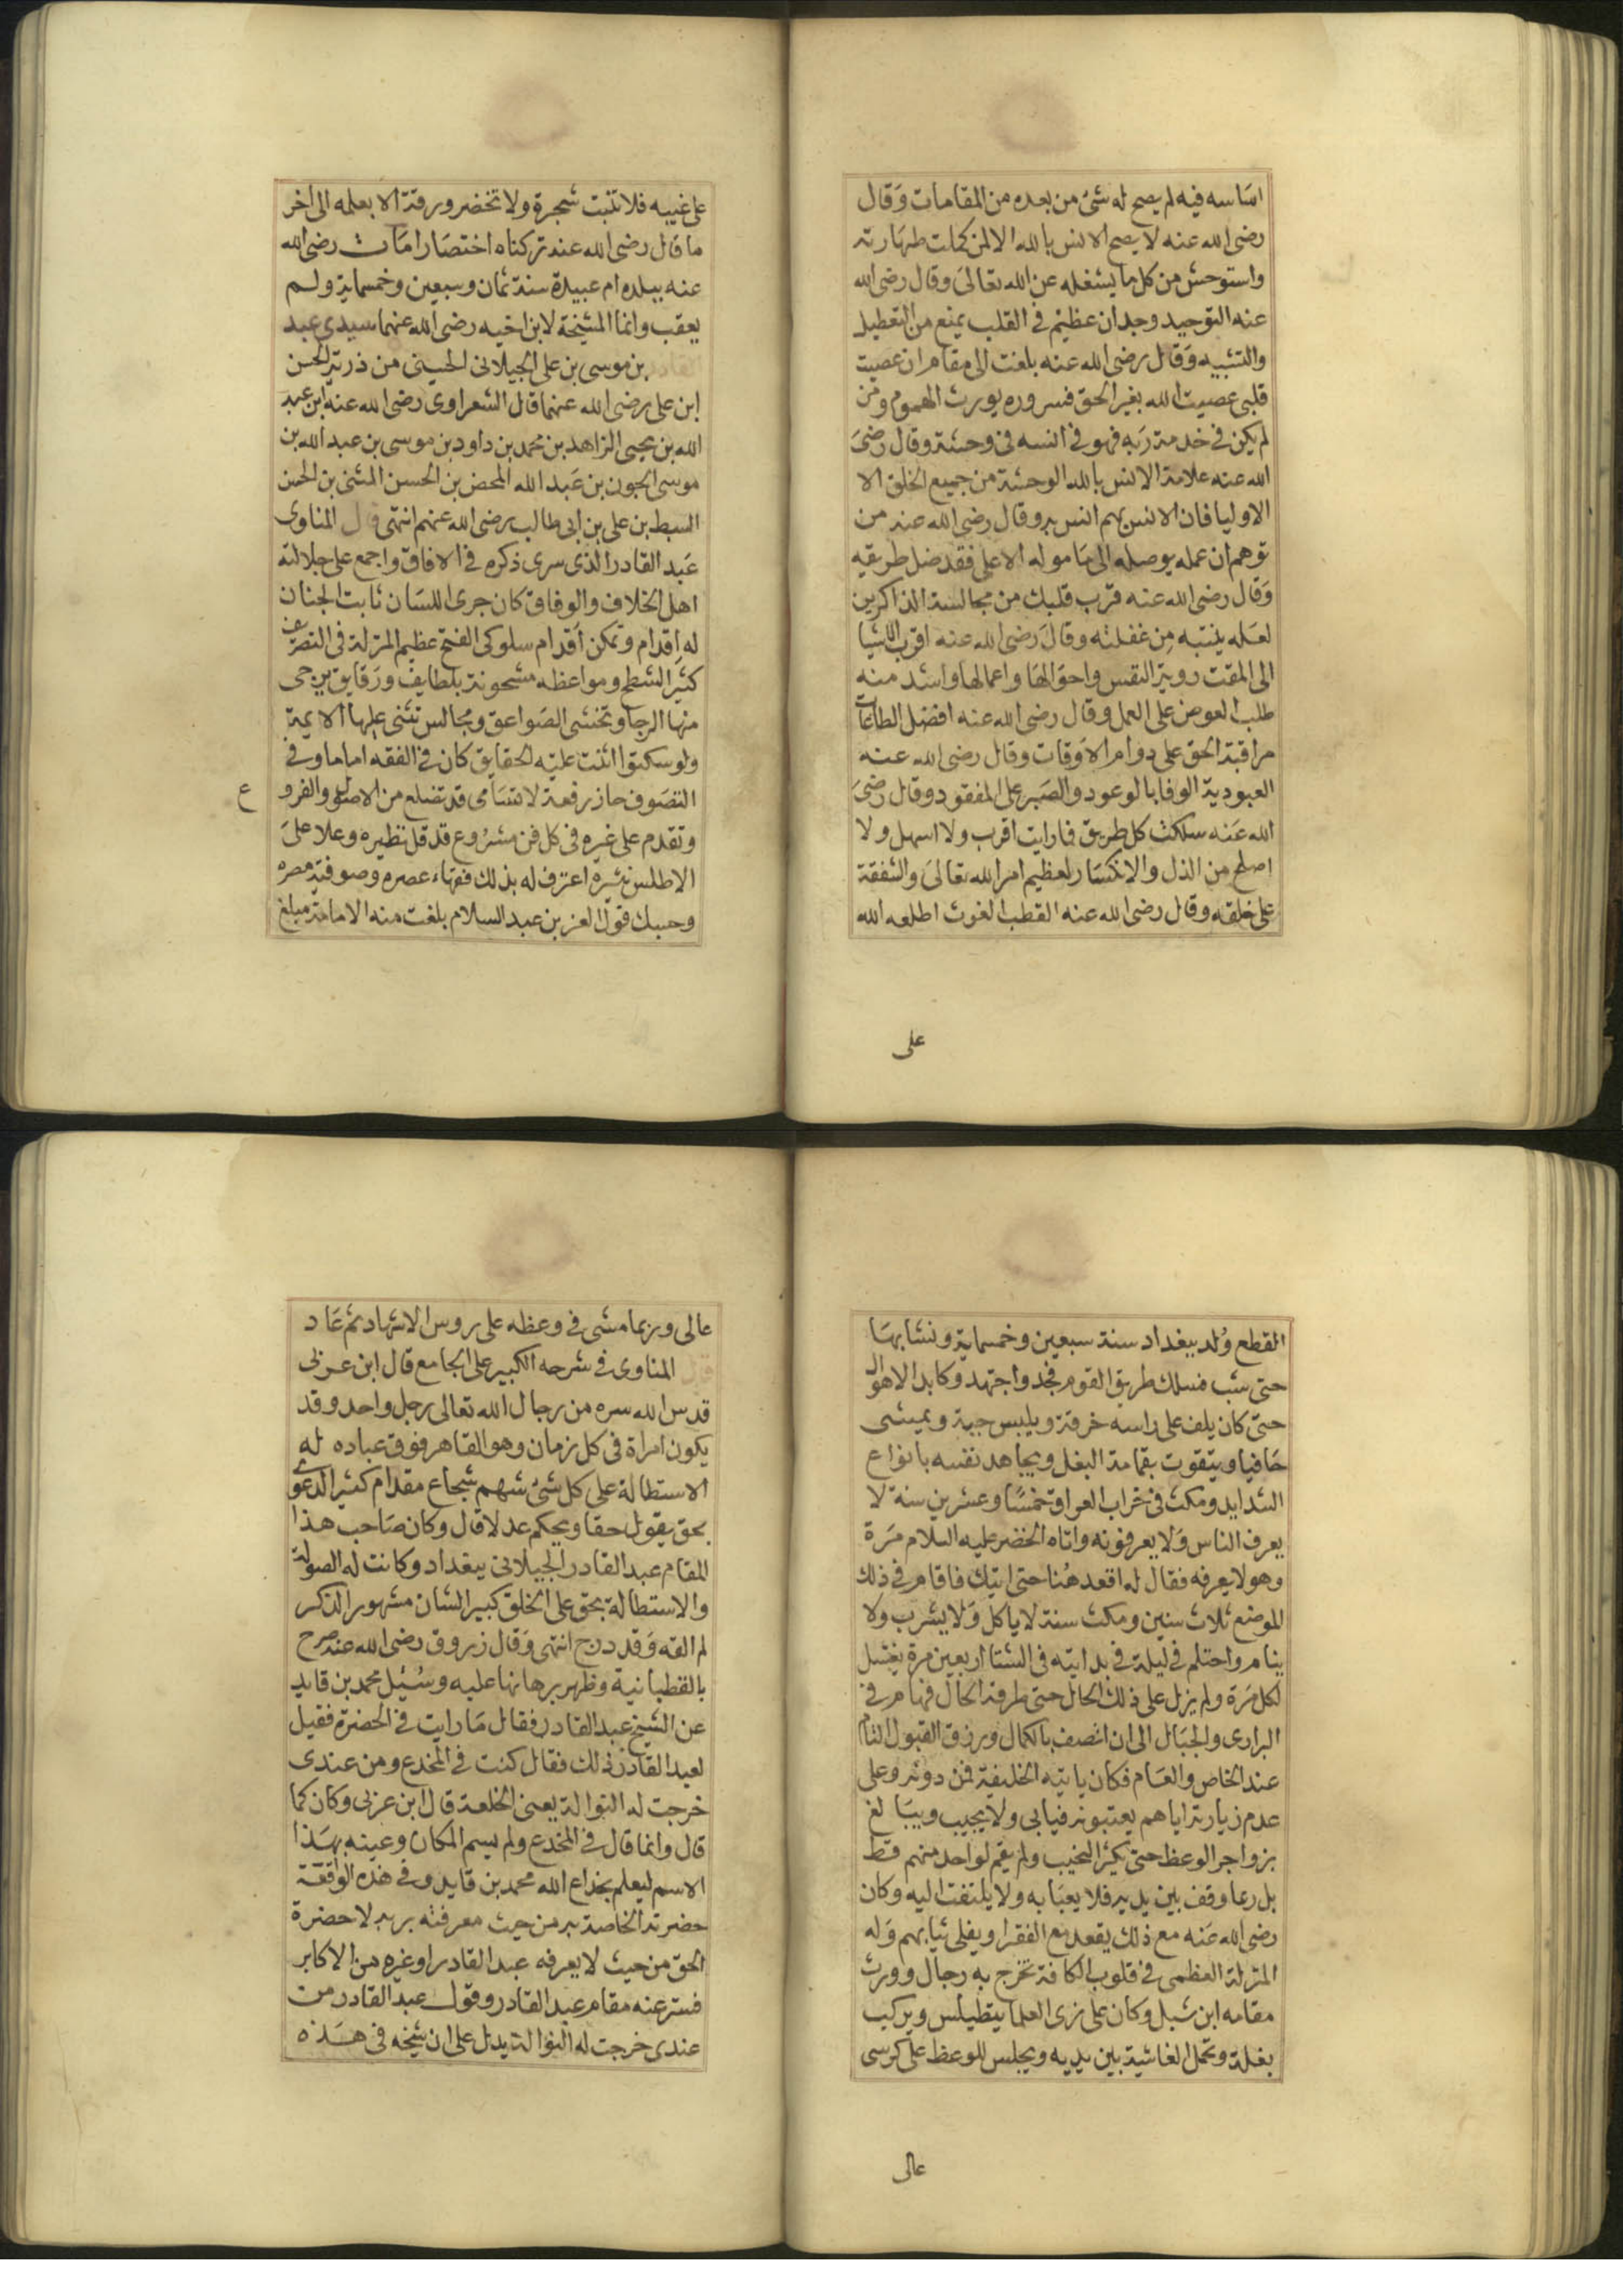 اساسه فيه لم يصح له شئ من بعده من المقامات وقال
رضى الله عنه لا يصح الانس بالله الا لمن كملت طهارته
واستوحش من كل ما يشغله عن الله تعالى وقال رضى الله
عنه التوحيد وجدان عظيم في القلب يمنع من التعطيل
والتشبيه وقال رضى الله عنه بلغت الى مقام ان عصيت
قلبى عصيت الله بغير الحق فسروره يورث الهموم ومن
لم يكن في خدمة ربه فهو في انسه في وحشة وقال رضى
الله عنه علامة الانس بالله الوحشة من جميع الخلق الا
الاوليا فان الانس بهم انس به وقال رضى الله عنه من
توهم ان عمله يوصله الى ماموله الاعلى فقد ضل طريقه
وقال رضى الله عنه قرب قلبك من مجالسة الذاكرين
لعله ينتبه من غفلته وقال رضى الله عنه اقرب الاشيا
الى المقت روية النفس واحوالها واعمالها واشد منه
طلب العوض على العمل وقال رضى الله عنه افضل الطاعات
مراقبة الحق على دوام الاوقات وقال رضى الله عنه
العبودية الوفا بالوعود والصبر على المفقود وقال رضى
الله عنه سلكت كل طريق فما رايت اقرب ولا اسهل ولا
اصلح من الذل والانكسار لعظيم امر الله تعالى والشفقة
على خلقه وقال رضى الله عنه القطب الغوث اطلعه الله
على
على غيبه فلا تنبت شجرة ولا تخضر ورقة الا بعلمه الى اخر
ما قال رضى الله عنه تركناه اختصارا مات رضى الله
عنه ببلده ام عبيدة سنة ثمان وسبعين وخمسماية ولم
يعقب وانما المشيخة لابن اخيه رضى الله عنهما سيدى عبد
القادر بن موسى بن على الجيلانى الحسينى من ذرية الحسن
ابن على رضى الله عنهما قال الشعراوى رضى الله عنه ابن عبد
الله بن يحيى الزاهد بن محمد بن داود بن موسى بن عبد الله بن
موسى الجون بن عبد الله المحض بن الحسن المثنى بن الحسن
السبط بن على بن ابى طالب رضى الله عنهم انتهى قال المناوى
عبد القادر الذى سرى ذكره في الافاق واجمع على جلالته
اهل الخلاف والوفاق كان جرى اللسان ثابت الجنان
له اقدام وتمكن اقدام سلوكى الفتح عظيم المنزلة في التصرف
كثير الشطح ومواعظه مشحونة بلطايف ورقايق يرجى
منها الرجا وتخشى الصواعق ومجالس تثنى عليها الايمة
ولو سكتوا اثنت عليه الحقايق كان في الفقه اماما وفي
التصوف حاز رفعة لا تتسامى قد تضلع من الاصول والفرو
ع
وتقدم على غيره في كل فن مشروع قد قل نظيره وعلا على
الاطلس نثره اعترف له بذلك فقهاء عصره وصوفية مصره
وحسبك قول العز بن عبد السلام بلغت منه الامامة مبلغ
القطع ولد ببغداد سنة سبعين وخمسماية ونشا بها
حتى شب فسلك طريق القوم فجد واجتهد وكابد الاهوال
حتى كان يلف على راسه خرقة ويلبس جبة ويمشى
حافيا ويتقوت بقمامة البغل ويجاهد نفسه بانواع
الشدايد ومكث في خراب العراق خمسا وعشرين سنة لا
يعرف الناس ولا يعرفونه واتاه الخضر عليه السلام مرة
وهو لا يعرفه فقال له اقعد هنا حتى اتيك فاقام في ذلك
الموضع ثلاث سنين ومكث سنة لا ياكل ولا يشرب ولا
ينام واحتلم في ليلة في بدايته في الشتا اربعين مرة يغتسل
لكل مرة ولم يزل على ذلك الحال حتى طرقه الحال فهام في
البرارى والجبال الى ان اتصف بالكمال ورزق القبول التام
عند الخاص والعام فكان ياتيه الخليفة فمن دونه وعلى
عدم زيارته اياهم يعتبونه فيابى ولا يجيب ويبالغ
بزواجر الوعظ حتى يكثر النحيب ولم يقم لواحد منهم قط
بل ربما وقف بين يديه فلا يعبا به ولا يلتفت اليه وكان
رضى الله عنه مع ذلك يقعد مع الفقرا ويفلى ثيابهم وله
المنزلة العظمى في قلوب الكافة تخرج به رجال وورث
مقامه ابن شبل وكان على زى العلما يتطيلس ويركب
بغلة وتحمل الغاشية بين يديه ويجلس للوعظ على كرسى
عالى
عالى وربما مشى في وعظه على روس الاشهاد ثم عاد
قال المناوى في شرحه الكبير على الجامع قال ابن عربى
قدس الله سره من رجال الله تعالى رجل واحد وقد
يكون امراة في كل زمان وهو القاهر فوق عباده له
الاستطالة على كل شئ شهم شجاع مقدام كثير الدعوى
بحق يقول حقا ويحكم عدلا قال وكان صاحب هذا
المقام عبد القادر الجيلانى ببغداد وكانت له الصولة
والاستطالة بحق على الخلق كبير الشان مشهور الذكر
لم القه وقد درج انتهى وقال زروق رضى الله عنه صرح
بالقطبانية وظهر برهانها عليه وسئيل محمد بن قايد
عن الشيخ عبد القادر فقال ما رايت في الحضرة فقيل
لعبد القادر ذلك فقال كنت في المخدع ومن عندى
خرجت له النوالة يعنى الخلعة قال ابن عربى وكان كما
قال وانما قال في المخدع ولم يسم المكان وعينه بهذا
الاسم ليعلم بخداع الله محمد بن قايد وفي هذه الواقعة
حضرته الخاصة به من حيث معرفته بربه لا حضرة
الحق من حيث لا يعرفه عبد القادر او غيره من الاكابر
فستر عنه مقام عبد القادر وقول عبد القادر من
عندى خرجت له النوالة يدل على ان شيخه في هذه